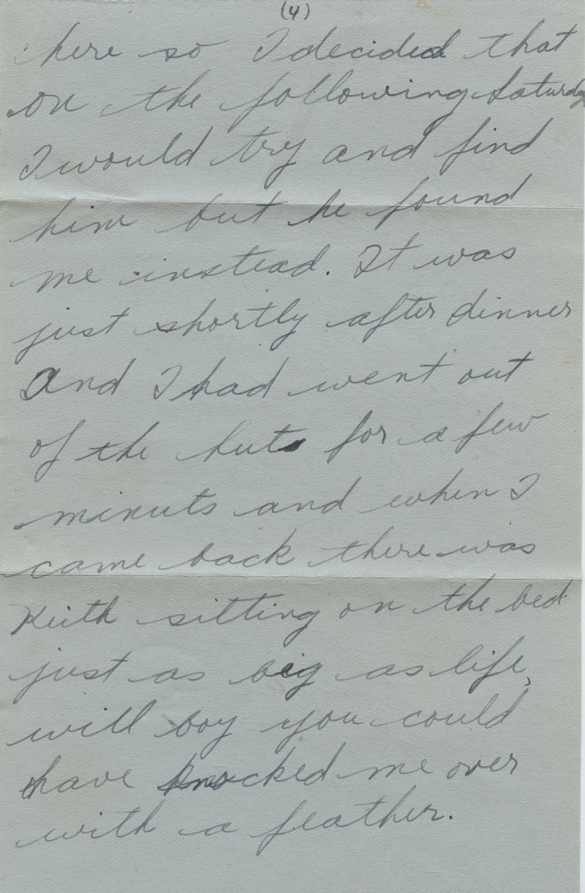 (4)
here so I decided that
on the following Saturday
I would try and find
him but he found
me instead. It was
just shortly after dinner
and I had went out
of the hut for a few
minuts and when I
came back there was
Keith sitting on the bed
just as big as life,
will boy you could
have knocked me over
with a feather.